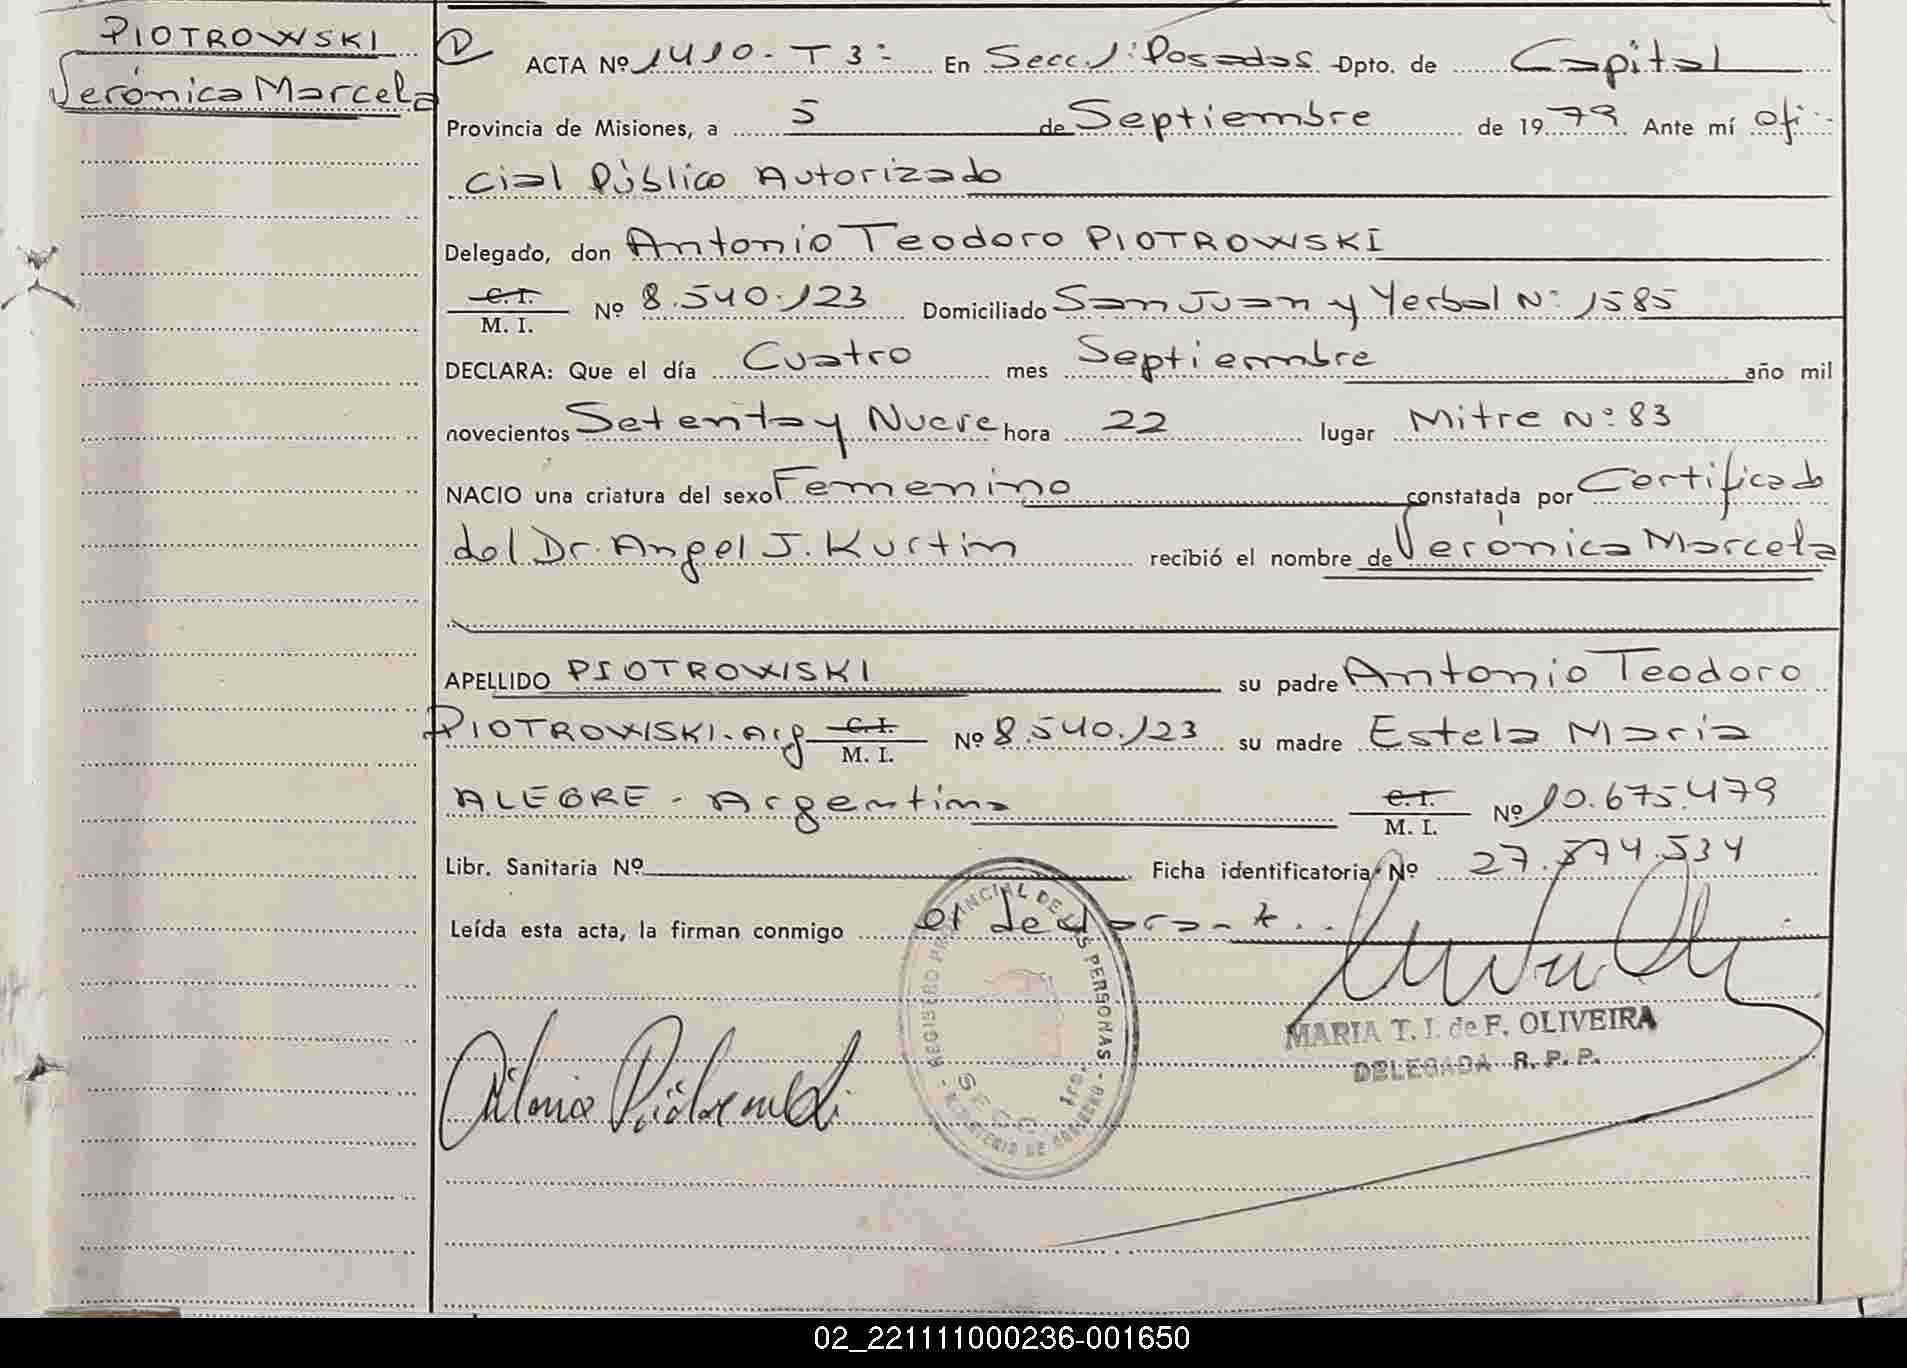 PIOTROWSKI
Verónica Marcela
ACTA Nº 1410-T3º En Secc. 1º Posadas Dpto. de Capital
Provincia de Misiones, a 5 de Septiembre de 1979 Ante mí Ofi-
cial Público Autorizado
Delegado, don Antonio Teodoro PIOTROWSKI
C.I. M. I. Nº 8.540.123 Domiciliado San Juan y Yerbal Nº 1585
DECLARA: Que el día Cuatro mes Septiembre año mil
novecientos Setenta y Nueve hora 22 lugar Mitre Nº 83
NACIO una criatura del sexo Femenino constatada por Certificado
del Dr. Angel J. Kurtin recibió el nombre de Verónica Marcela
APELLIDO PIOTROWISKI su padre Antonio Teodoro
PIOTROWISKI-Arg C.I. M. I. Nº 8.540.123 su madre Estela Maria
ALEGRE - Argentina C.I. M. I. Nº 10.675.479
Libr. Sanitaria Nº Ficha identificatoria Nº 27.574.534
Leída esta acta, la firman conmigo el declarante..
REGISTRO PROVINCIAL DE LAS PERSONAS - MINISTERIO DE GOBIERNO -
SECC. 1ra.
MARIA T. I. de F. OLIVEIRA
DELEGADA R. P. P.
02_221111000236-001650